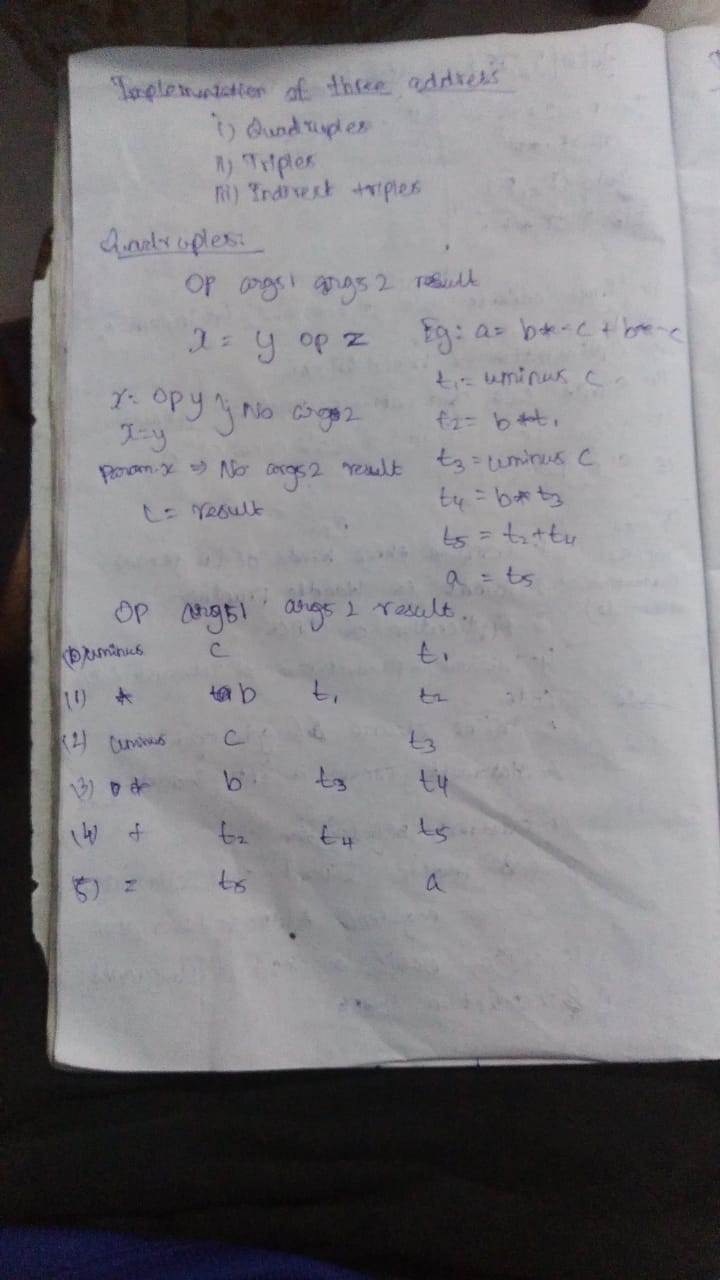 Implementation of three address
i) Quadruples
ii) Triples
iii) Indirect triples
Quadruples:
Op args1 args2 result
x = y op z
x = op y } No args2
x=y
param x ⇒ No args2 result
L = result
Eg: a = b*-c + b*-c
t1 = uminus c
t2 = b*t1
t3 = uminus c
t4 = b* t3
t5 = t2+t4
a = t5
Op args1 args2 result.
(0) uminus c t1
(1) * b t1 t2
(2) uminus c t3
(3) * b t3 t4
(4) + t2 t4 t5
(5) = t5 a